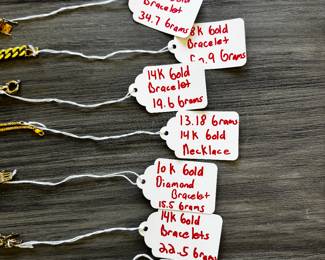 Bracelet
34.7 Grams
8K Gold
Bracelet
.9 Grams
14K Gold
Bracelet
19.6 Grams
13.18 Grams
14K Gold
Necklace
10K Gold
Diamond
Bracelet
15.5 Grams
14K Gold
Bracelets
22.5 Grams